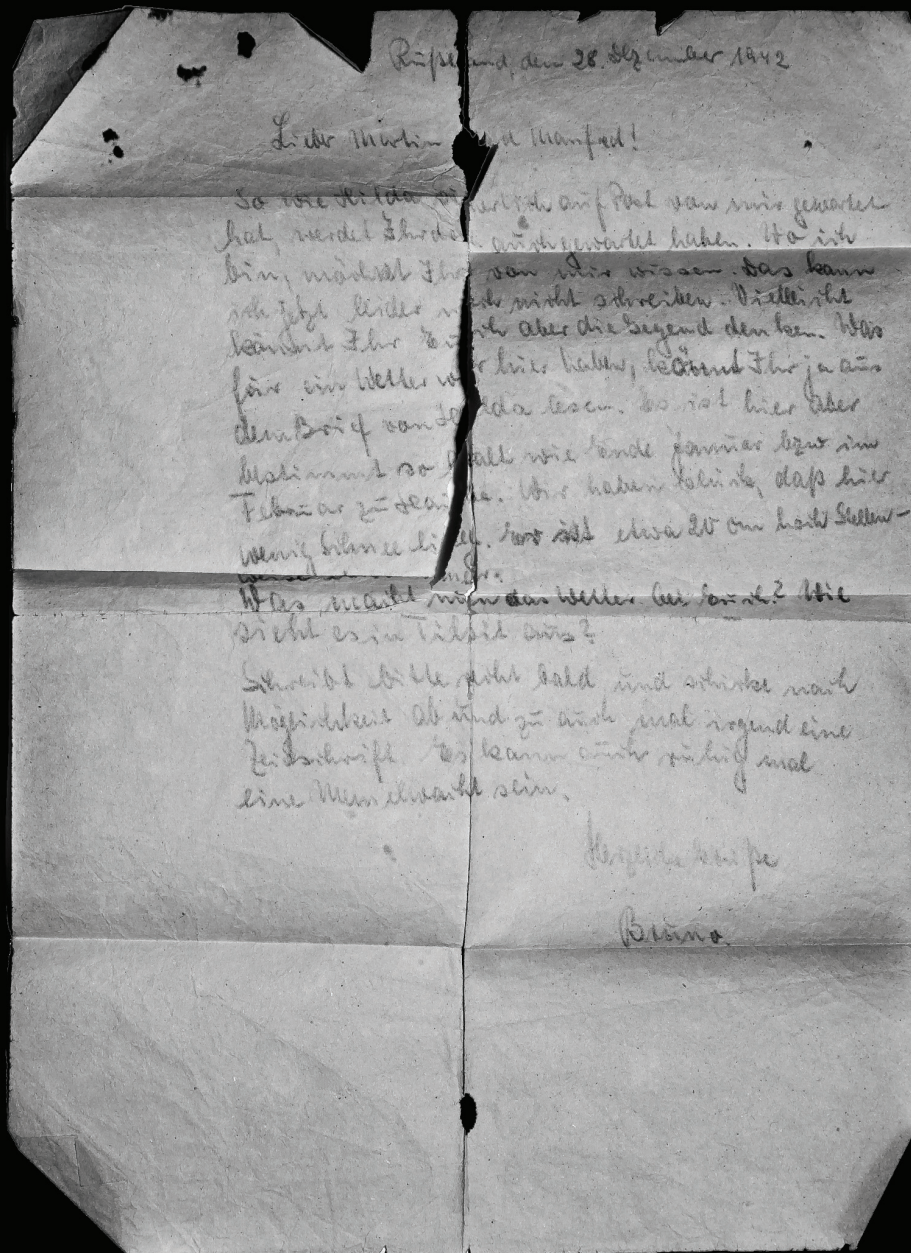 Rußland, den 28. Dezember 1942
Lieber Martin und Manfred!
So wie Hilda auf Post von mir gewartet
hat, werdet Ihr doch auch gewartet haben. Wo ich
bin, möchtet Ihr von mir wissen. Das kann
ich jetzt leider noch nicht schreiben. Vielleicht
könnt Ihr Euch aber die Gegend denken. Was
für ein Wetter wir hier haben, könnt Ihr ja aus
dem Brief von Hilda lesen. Es ist hier aber
bestimmt so kalt wie Ende Januar bzw im
Februar zu Hause. Wir haben Glück, daß hier
wenig Schnee liegt. ist etwa 20 cm hoch Stellen-
weise mehr.
Was macht nun das Wetter bei Euch? Wie
sieht es in Tilsit aus?
Schreibt bitte recht bald und schicke nach
Möglichkeit ab und zu auch mal irgend eine
Zeitschrift. Es kann auch ruhig mal
eine Memelwacht sein.
Herzliche Grüße
Bruno.